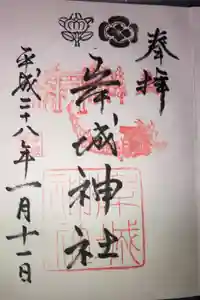 奉拝
岸城神社
平成二十八年一月十一日